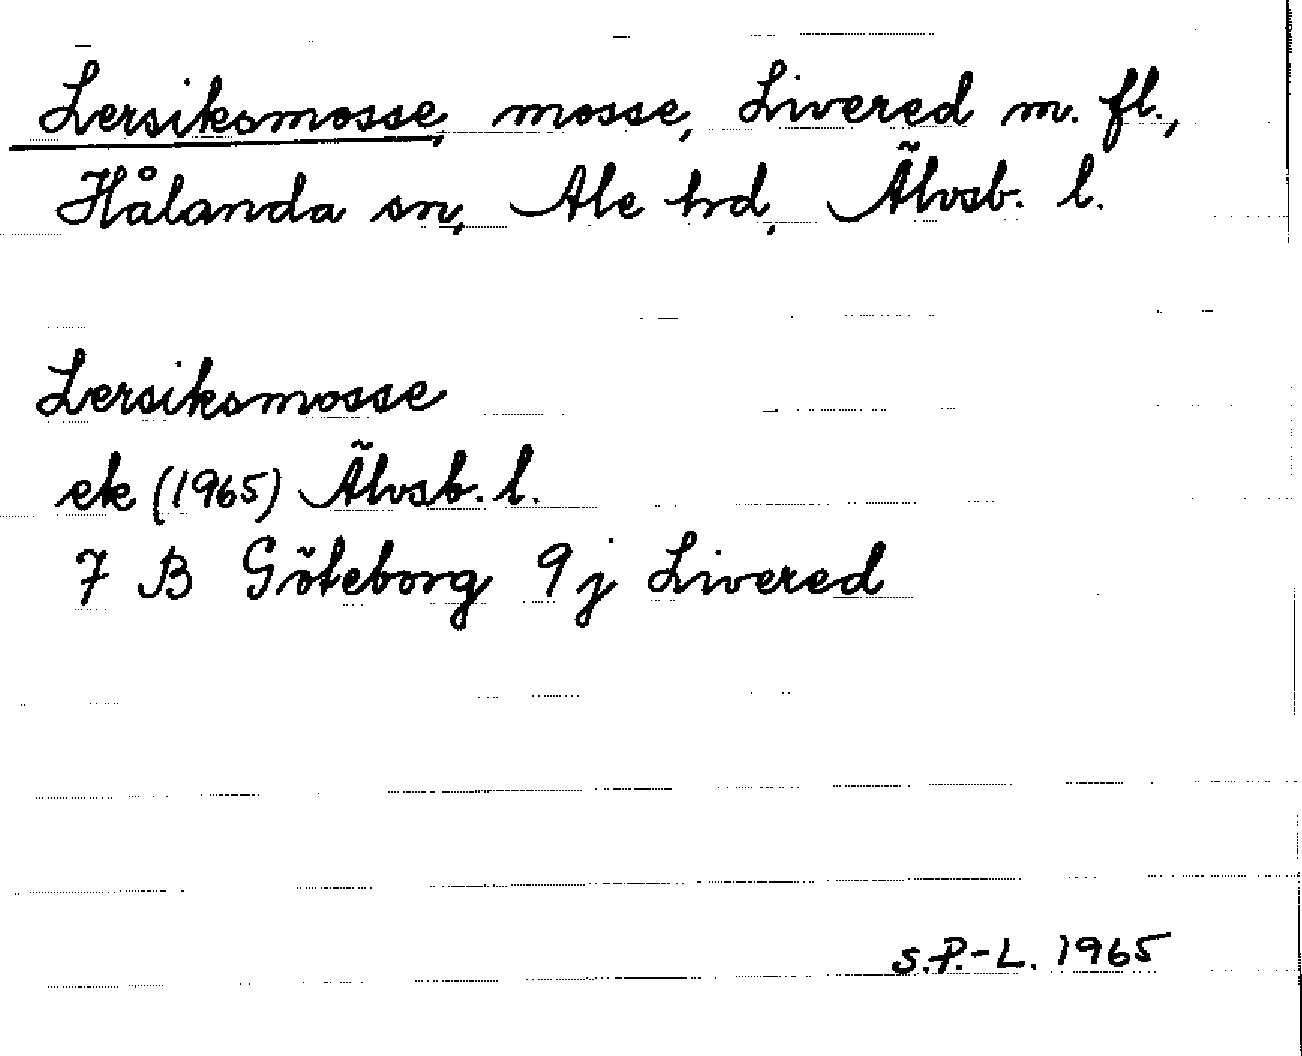 Lersiksmosse, mosse, Livered m. fl.,
Hålanda sn, Ale hrd, Älvsb. l.
Lersiksmosse
ek (1965) Älvsb. l.
7 B Göteborg 9 j Livered
S.P.-L. 1965